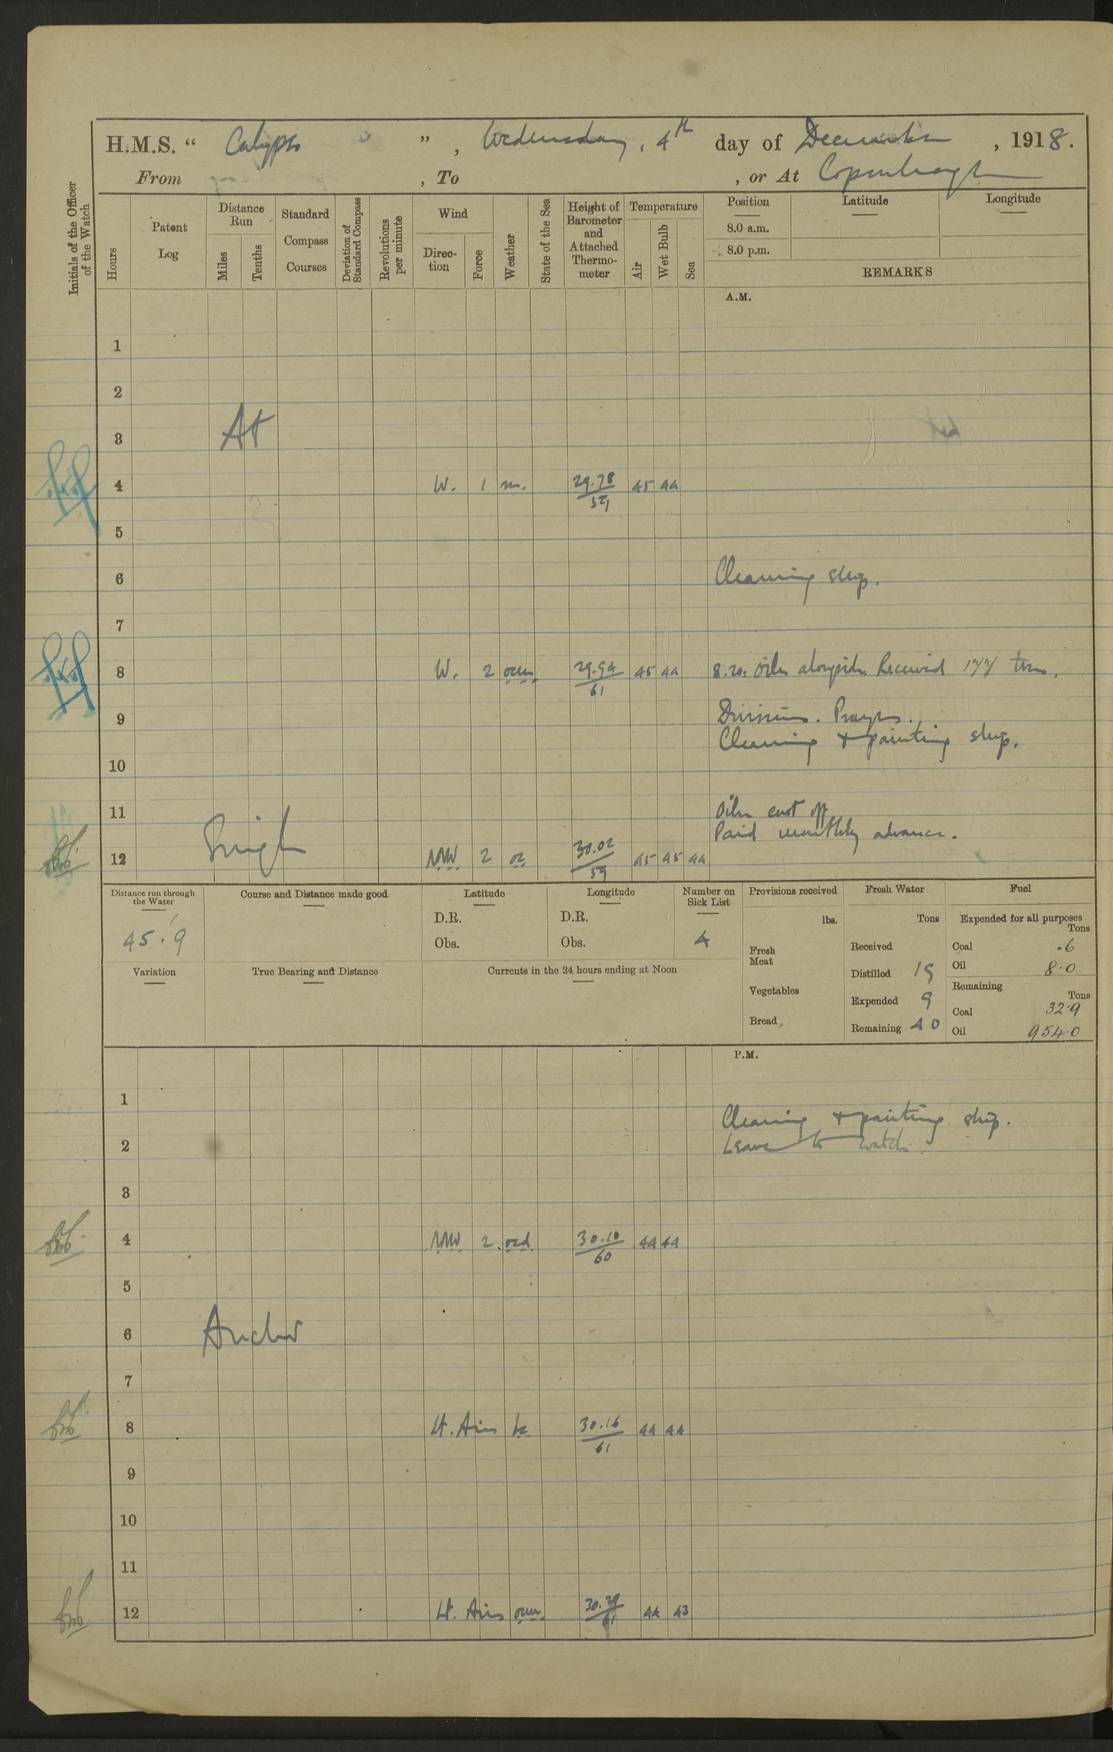 H.M.S. “ Calypso ” , Wednesday, 4th day of December , 1918.
From , To , or At Copenhagen
Initials of the Officer of the Watch
Hours
Patent Log
Distance Run
Miles
Tenths
Standard Compass Courses
Deviation of Standard Compass
Revolutions per minute
Wind
Direc-tion
Force
Weather
State of the Sea
Height of Barometer and Attached Thermo-meter
Temperature
Air
Wet Bulb
Sea
Position
8.0 a.m.
8.0 p.m.
Latitude
Longitude
REMARKS
A.M.
1
2
3 At
4 W. 1 m. 29.78/59 45 44
5
6 Cleaning ship.
7
8 W. 2 ocm 29.94/61 45 44 8.20. Oiler alongside. Received 177 tons.
9 Divisions. Prayers.
Cleaning & painting ship.
10
11 Oiler cast off
Paid monthly advance.
12 Single NNW 2 oc 30.02/59 45 45 44
Distance run through the Water
45.9
Course and Distance made good
Latitude
D.R.
Obs.
Longitude
D.R.
Obs.
Number on Sick List
4
Variation
True Bearing and Distance
Currents in the 24 hours ending at Noon
Provisions received
lbs.
Fresh Meat
Vegetables
Bread
Fresh Water
Tons
Received
Distilled 15
Expended 9
Remaining 40
Fuel
Expended for all purposes
Tons
Coal .6
Oil 8.0
Remaining
Tons
Coal 32.9
Oil 954.0
P.M.
1
Cleaning & painting ship.
2 Leave to watch.
3
4 NNW 2 ocd 30.10/60 44 44
5
6 Anchor
7
8 Lt. Airs bc 30.16/61 44 44
9
10
11
12 Lt. Airs ocm 30.29/61 44 43